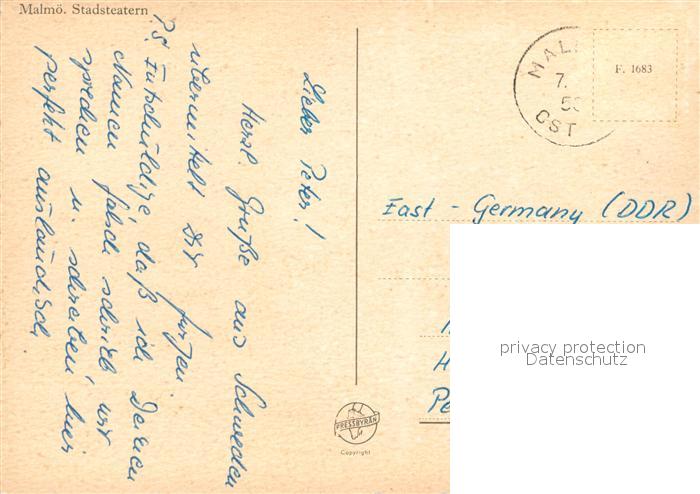 Malmö. Stadsteatern
Lieber Peter!
Herzl. Grüße aus Schweden
übermittelt Dir
P.S. Entschuldige daß ich Deinen
Namen falsch schrieb wir
sprechen u. schreiben hier
perfekt ausländisch
MAL
7.
5
ÖST
F. 1683
East - Germany (DDR)
H
Pe
privacy protection
Datenschutz
PRESSBYRÅN
Copyright